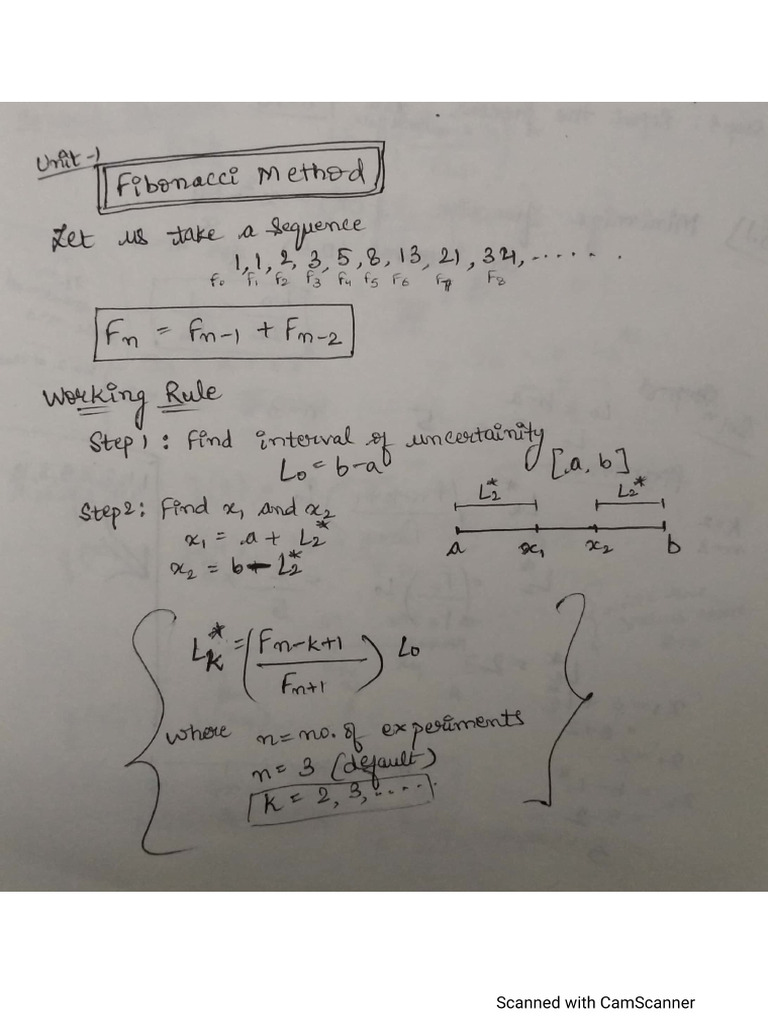 Unit-1
Fibonacci Method
Let us take a sequence
1, 1, 2, 3, 5, 8, 13, 21, 34, ......
F₀ F₁ F₂ F₃ F₄ F₅ F₆ F₇ F₈
Fₙ = Fₙ₋₁ + Fₙ₋₂
Working Rule
Step 1 : Find interval of uncertainity
L₀ = b-a [a, b]
Step 2: Find x₁ and x₂
x₁ = a + L₂*
x₂ = b - L₂*
L₂* L₂*
a x₁ x₂ b
Lₖ* = (Fₙ₋ₖ₊₁ / Fₙ₊₁) L₀
where n = no. of experiments
n = 3 (default)
k = 2, 3, .....
Scanned with CamScanner